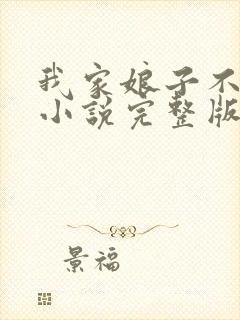 我家娘子不
小说完整版
景福